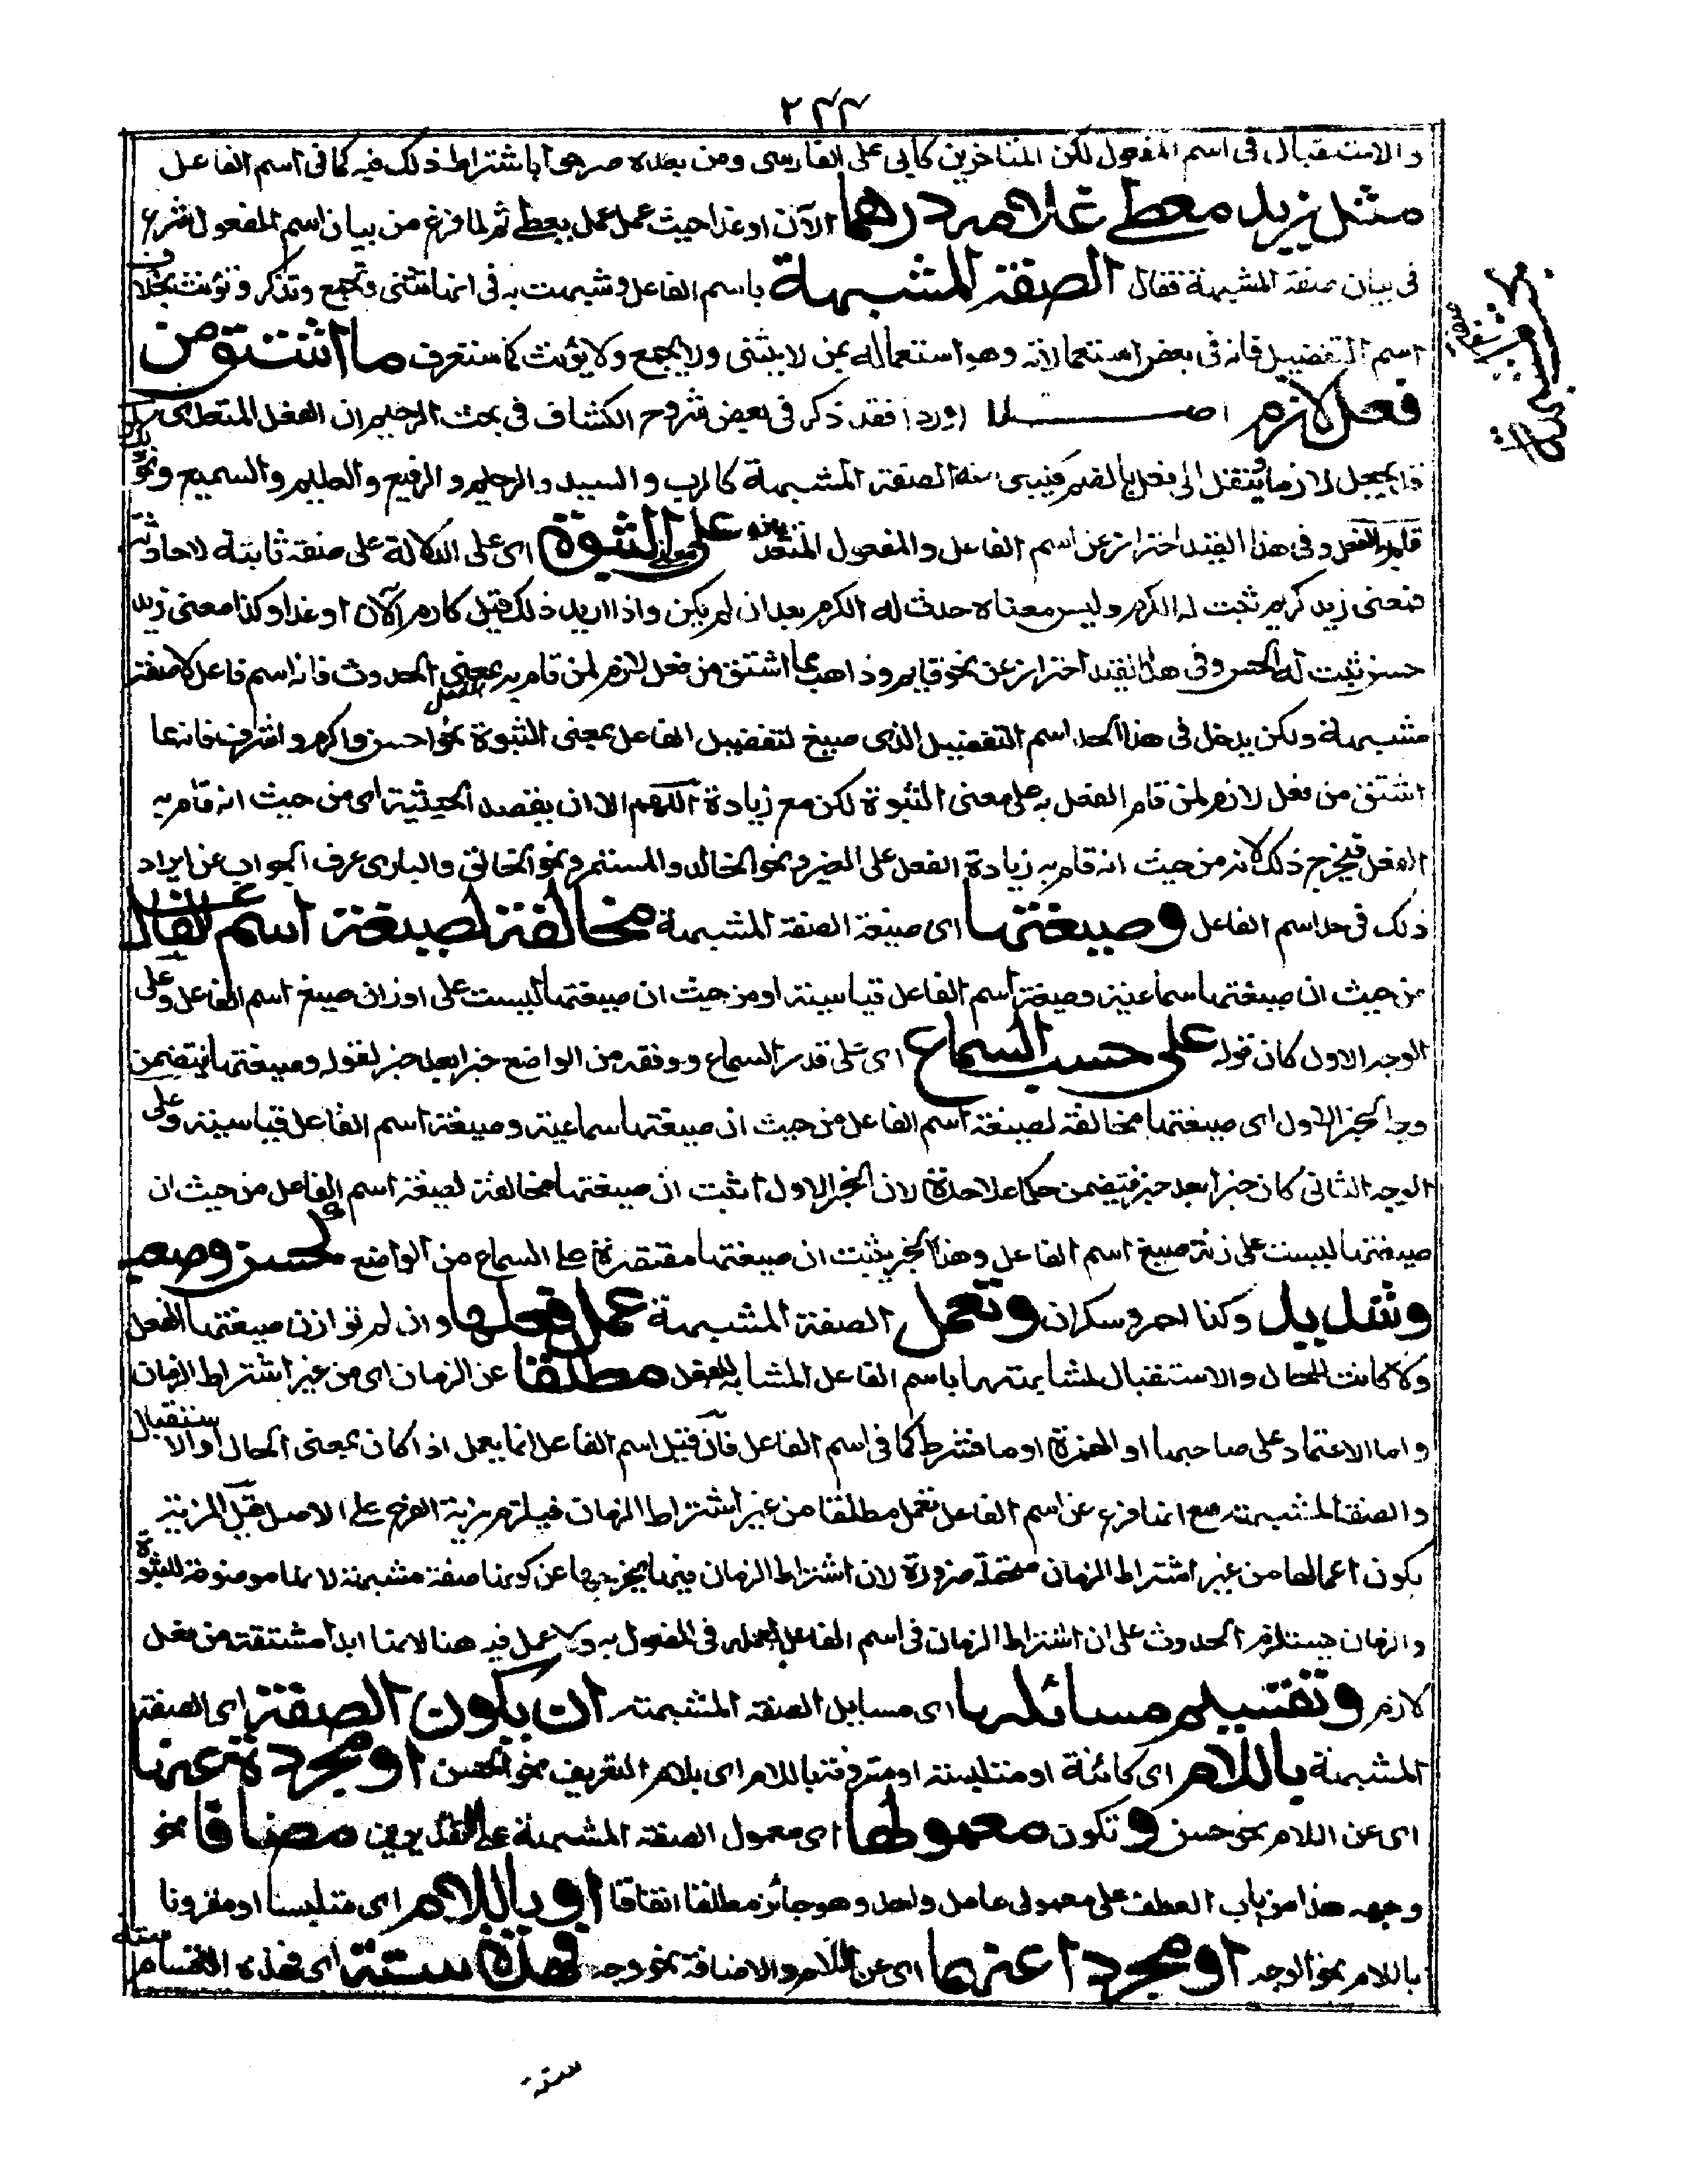 ٢٤٤
والاستقبال فى اسم المفعول لكن المتاخرين كابى على الفارسى ومن بعده صرحوا باشتراط ذلك فيه كما فى اسم الفاعل
مثل زيد معطى غلامه درهما الآن او غدا حيث عمل عمل يعطى ثم لما فرغ من بيان اسم المفعول شرع
فى بيان صفة المشبهة فقال الصفة المشبهة باسم الفاعل وشبهت به فى انها تثنى وتجمع وتذكر وتؤنث بخلاف
اسم التفضيل فانه فى بعض استعمالاته وهو استعماله بمن لا يثنى ولا يجمع ولا يؤنث كما ستعرف ما اشتق من
فعل لازم اصلا اورد افقد ذكر فى بعض شروح الكشاف فى بحث الرحيم ان الفعل المتعدى
قد يجعل لازما وينقل الى فعل بالضم فيبنى منه الصفة المشبهة كالرب والسيد والرحيم والرفيع والعليم والسميع ونحو
وفى هذا القيد احتراز عن اسم الفاعل والمفعول المتعديين على معنى الثبوة اى على الدلالة على صفة ثابتة لا حادثة
فمعنى زيد كريم ثبت له الكرم وليس معناه حدث له الكرم بعد ان لم يكن واذا اريد ذلك قيل كارم الآن او غدا وكذا معنى زيد
حسن ثبت له الحسن وفى هذا القيد احتراز عن نحو قايم وذاهب مما اشتق من فعل لازم لمن قام به بمعنى الحدوث فانه اسم فاعل لا صفة
مشبهة ولكن يدخل فى هذا الحد اسم التفضيل الذى صيغ لتفضيل الفاعل بمعنى الثبوة نحو احسن واكرم واشرف فانه مما
اشتق من فعل لازم لمن قام الفعل به على معنى الثبوة لكن مع زيادة اللهم الا ان يقصد الحيثية اى من حيث انه قام به
الفعل فيخرج ذلك لانه من حيث انه قام به زيادة الفعل على الغير ونحو الخالد والمستمر ونحو الخالق والبارى عرف الجواب عن ايراد
ذلك فى حد اسم الفاعل وصيغتها اى صيغة الصفة المشبهة مخالفة لصيغة اسم الفاعل
من حيث ان صيغتها سماعية وصيغة اسم الفاعل قياسية او من حيث ان صيغتها ليست على اوزان صيغ اسم الفاعل وعلى
الوجه الاول كان قوله على حسب السماع اى على قدر السماع ووفقه من الواضع خبرا بعد خبر لقوله وصيغتها يتضمن
وجه الخبر الاول اى صيغتها مخالفة لصيغة اسم الفاعل من حيث ان صيغتها سماعية وصيغة اسم الفاعل قياسية وعلى
الوجه الثانى كان خبرا بعد خبر فيتضمن حكما علاحدة لان الخبر الاول اثبت ان صيغتها مخالفة لصيغة اسم الفاعل من حيث ان
صيغتها ليست على زنة صيغ اسم الفاعل وهذا الخبر يثبت ان صيغتها مقتصرة على السماع من الواضع كحسن وصعب
وشديد وكذا احمر وسكران وتعمل الصفة المشبهة عمل فعلها وان لم توازن صيغتها الفعل
ولا كانت للحال والاستقبال لمشابهتها باسم الفاعل المشابه للفعل مطلقا عن الزمان اى من غير اشتراط الزمان
واما الاعتماد على صاحبها او الهمزة او ما فتشرط كما فى اسم الفاعل فان قيل اسم الفاعل انما يعمل اذا كان بمعنى الحال او الاستقبال
والصفة المشبهة مع انها فرع عن اسم الفاعل تعمل مطلقا من غير اشتراط الزمان فيلزم مزية الفرع على الاصل قيل المزية
بكون اعمالها من غير اشتراط الزمان متحملة ضرورة لان اشتراط الزمان فيها يخرجها عن كونها صفة مشبهة لانها موضوعة للثبوة
والزمان يستلزم الحدوث على ان اشتراط الزمان فى اسم الفاعل لعمله فى المفعول به ولا عمل فيه هنا لانها ابدا مشتقة من فعل
لازم وتقسيم مسائلها اى مسايل الصفة المشبهة ان يكون الصفة اى الصفة
المشبهة باللام اى كائنة او متلبسة او مقرونة باللام اى بلام التعريف نحو الحسن او مجردة عنها
اى عن اللام نحو حسن و تكون معمولها اى معمول الصفة المشبهة على التقديرين مضافا نحو
وجهه هذا من باب العطف على معمولى عامل واحد وهو جائز مطلقا اتفاقا او باللام اى متلبسا او مقرونا
باللام نحو الوجه او مجردا عنهما اى عن اللام والاضافة نحو وجه فهذه ستة اى فهذه الاقسام ستة
ستة